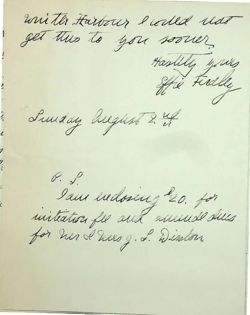 Winter Harbour I could not
get this to you sooner.
Hastily yours
Effie Firdley
Sunday August 2nd
P. S.
I am enclosing $20. for
initiation fee and annual dues
for Mr & Mrs J. L. Disston